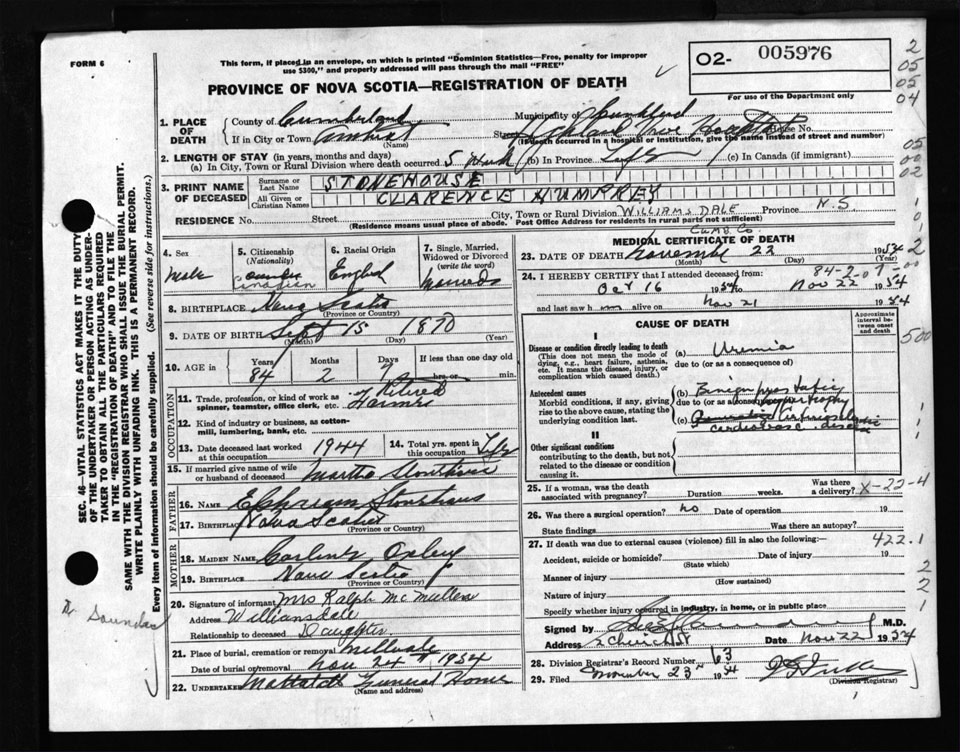 FORM 6
This form, if placed in an envelope, on which is printed "Dominion Statistics—Free, penalty for improper
use $300," and properly addressed will pass through the mail "FREE"
02- 005976
For use of the Department only
PROVINCE OF NOVA SCOTIA—REGISTRATION OF DEATH
2
05
05
04
1. PLACE OF DEATH
County of Cumberland Municipality of
If in City or Town Amherst (Name) Street Highland View Hospital House No.
(If death occurred in a hospital or institution, give the name instead of street and number)
2. LENGTH OF STAY (in years, months and days)
(a) In City, Town or Rural Division where death occurred 5 (b) In Province Life (c) In Canada (if immigrant)
05
00
02
3. PRINT NAME OF DECEASED
Surname or Last Name STONEHOUSE
All Given or Christian Names CLARENCE HUMPREY
RESIDENCE No. Street City, Town or Rural Division WILLIAMSDALE Province N.S.
(Residence means usual place of abode. Post Office Address for residents in rural parts not sufficient)
CUMB. Co.
4. Sex Male
5. Citizenship (Nationality) Canadian
6. Racial Origin
7. Single, Married, Widowed or Divorced (write the word)
8. BIRTHPLACE Nova Scotia
(Province or Country)
9. DATE OF BIRTH Sept 15 1870
(Month) (Day) (Year)
10. AGE in Years 84 Months 2 Days 7 If less than one day old hrs. or min.
OCCUPATION
11. Trade, profession, or kind of work as spinner, teamster, office clerk, etc. Retired Farmer
12. Kind of industry or business, as cotton-mill, lumbering, bank, etc.
13. Date deceased last worked at this occupation 1944
14. Total yrs. spent in this occupation Life
15. If married give name of wife or husband of deceased Martha Stonehouse
FATHER
16. NAME Ephraim Stonehouse
17. BIRTHPLACE Nova Scotia
(Province or Country)
MOTHER
18. MAIDEN NAME
19. BIRTHPLACE Nova Scotia
(Province or Country)
20. Signature of informant Mrs Ralph McMullen
Address Williamsdale
Relationship to deceased Daughter
21. Place of burial, cremation or removal Millvale
Date of burial or removal Nov 24th 1954
22. UNDERTAKER Mattatall Funeral Home
(Name and address)
MEDICAL CERTIFICATE OF DEATH
23. DATE OF DEATH November 22 1954
(Month) (Day)
84-2-07-00
24. I HEREBY CERTIFY that I attended deceased from:
Oct 16 1954 to Nov 22 1954
and last saw h im alive on Nov 21 1954
CAUSE OF DEATH
Approximate interval between onset and death
I
Disease or condition directly leading to death
(This does not mean the mode of dying, e.g., heart failure, asthenia, etc. It means the disease, injury, or complication which caused death.)
(a) Uremia
due to (or as a consequence of)
500
Antecedent causes
Morbid conditions, if any, giving rise to the above cause, stating the underlying condition last.
(b) Benign prostatic hypertrophy
due to (or as a consequence of)
(c) Arteriosclerotic
cardiovasc. disease
II
Other significant conditions
contributing to the death, but not related to the disease or condition causing it.
25. If a woman, was the death associated with pregnancy? Duration weeks. Was there a delivery?
X-22-4
26. Was there a surgical operation? no Date of operation 19
State findings Was there an autopsy?
27. If death was due to external causes (violence) fill in also the following:—
422.1
Accident, suicide or homicide? Date of injury 19
(State which)
Manner of injury
(How sustained)
Nature of injury
Specify whether injury occurred in industry, in home, or in public place
Signed by M.D.
Address 2 Church St Date Nov 22 1954
28. Division Registrar's Record Number 63
29. Filed November 23rd 1954
(Division Registrar)
SEC. 46—VITAL STATISTICS ACT MAKES IT THE DUTY
OF THE UNDERTAKER OR PERSON ACTING AS UNDER-
TAKER TO OBTAIN ALL THE PARTICULARS REQUIRED
IN THE "REGISTRATION OF DEATH" AND TO FILE THE
SAME WITH THE DIVISION REGISTRAR WHO SHALL ISSUE THE BURIAL PERMIT.
WRITE PLAINLY WITH UNFADING INK. THIS IS A PERMANENT RECORD.
Every item of information should be carefully supplied. (See reverse side for instructions.)